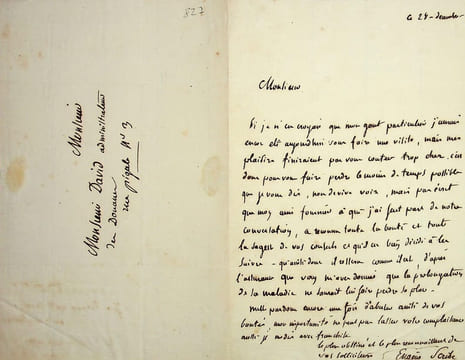 827
Monsieur
Monsieur David administrateur
des Douanes
rue pigale N° 3
ce 24 - décembre
Monsieur
Si je n'en croyais que mon gout particulier j'aurais
encore été aujourd'hui vous faire une visite, mais mes
plaisirs finiraient par vous couter trop cher, c'est
donc pour vous faire perdre le moins de temps possible
que je vous dis, non de vive voix, mais par écrit
que mon ami à qui j'ai fait part de notre
conversation, a reconnu toute la bonté et toute
la sagesse de vos conseils et qu'il est bien décidé à les
suivre - comme il est d'après
l'assurance que vous m'avez donnée que la prolongation
de sa maladie ne saurait lui faire perdre sa place -
mille pardons encore une fois d'abuser ainsi de vos
bontés, mon importunité ne peut pas lasser votre complaisance
aussi je me dis avec franchise
le plus obstiné et le plus reconnaissant de
vos solliciteurs Eugène Scribe